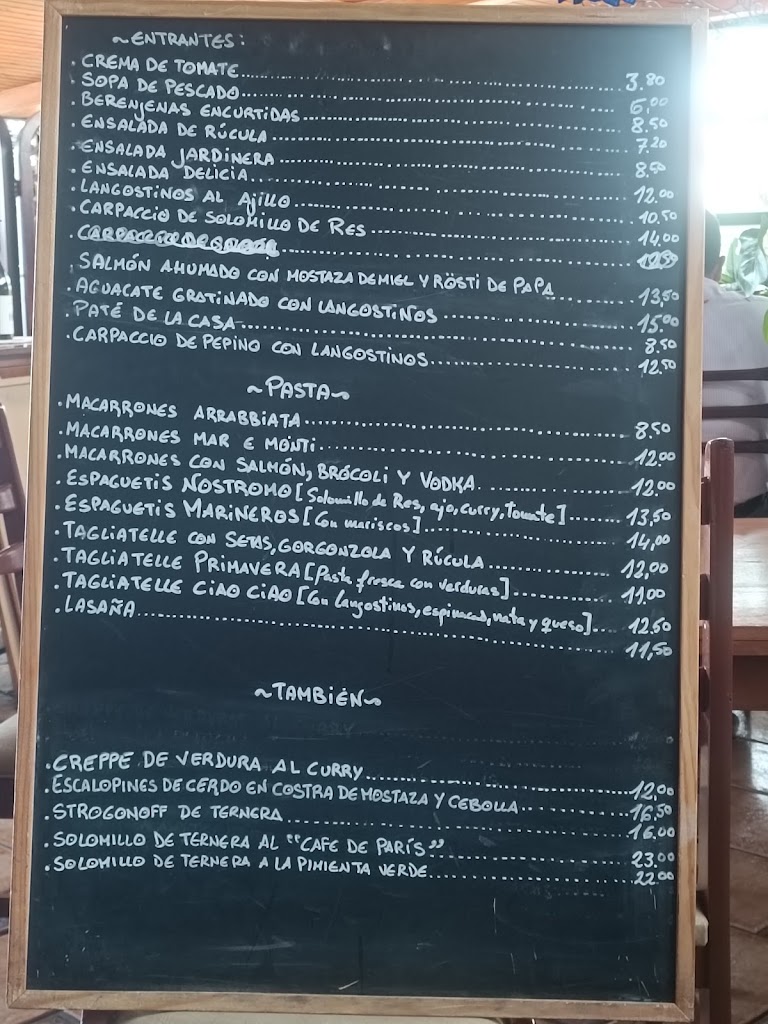 ~ENTRANTES:
.CREMA DE TOMATE............3.80
.SOPA DE PESCADO............6,00
.BERENJENAS ENCURTIDAS............8.50
.ENSALADA DE RÚCULA............7.20
.ENSALADA JARDINERA............8.50
.ENSALADA DELICIA............12.00
.LANGOSTINOS AL AJILLO............10.50
.CARPACCIO DE SOLOMILLO DE RES............14.00
.SALMÓN AHUMADO CON MOSTAZA DE MIEL Y RÖSTI DE PAPA............13,50
.AGUACATE GRATINADO CON LANGOSTINOS............15.00
.PATÉ DE LA CASA............8.50
.CARPACCIO DE PEPINO CON LANGOSTINOS............12.50
~PASTA~
.MACARRONES ARRABBIATA............8.50
.MACARRONES MAR E MONTI............12.00
.MACARRONES CON SALMÓN, BRÓCOLI Y VODKA............12.00
.ESPAGUETIS NOSTROMO [Solomillo de Res, ajo, curry, tomate]............13,50
.ESPAGUETIS MARINEROS [Con mariscos]............14,00
.TAGLIATELLE CON SETAS, GORGONZOLA Y RÚCULA............12,00
.TAGLIATELLE PRIMAVERA [Pasta fresca con verduras]............11.00
.TAGLIATELLE CIAO CIAO [Con langostinos, espinacas, nata y queso]....12.50
.LASAÑA............11,50
~TAMBIÉN~
.CREPPE DE VERDURA AL CURRY............12,00
.ESCALOPINES DE CERDO EN COSTRA DE MOSTAZA Y CEBOLLA............16,50
.STROGONOFF DE TERNERA............16.00
.SOLOMILLO DE TERNERA AL "CAFE DE PARÍS"............23.00
.SOLOMILLO DE TERNERA A LA PIMIENTA VERDE............22.00